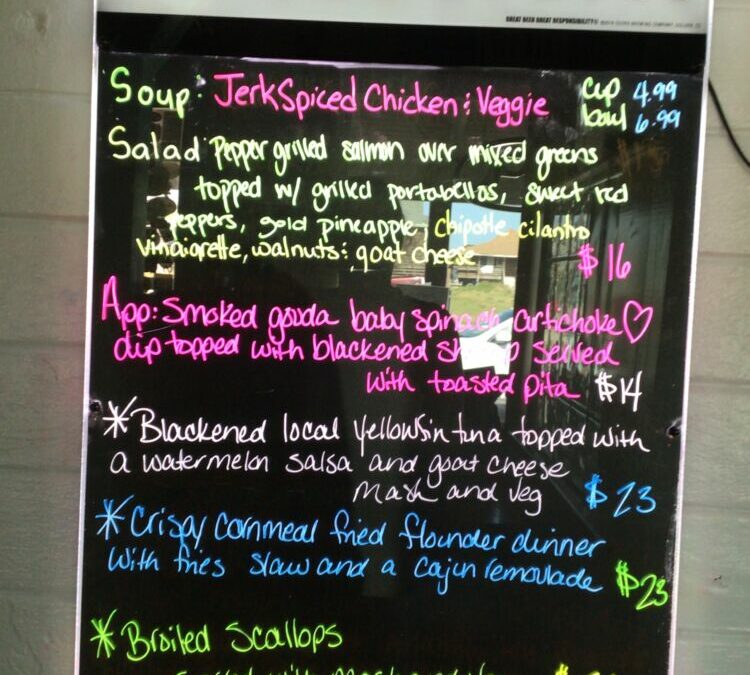 GREAT BEER GREAT RESPONSIBILITY®
Soup: Jerk Spiced Chicken & Veggie cup 4.99
bowl 6.99
Salad Pepper grilled salmon over mixed greens
topped w/ grilled portabellas, sweet red
peppers, gold pineapple, chipotle cilantro
vinaigrette, walnuts & goat cheese
$16
App: Smoked gouda baby spinach artichoke♡
dip topped with blackened served
with toasted pita $14
*Blackened local yellowfin tuna topped with
a watermelon salsa and goat cheese
mash and veg $23
*Crispy Cornmeal fried flounder dinner
with fries slaw and a cajun remoulade $23
*Broiled Scallops